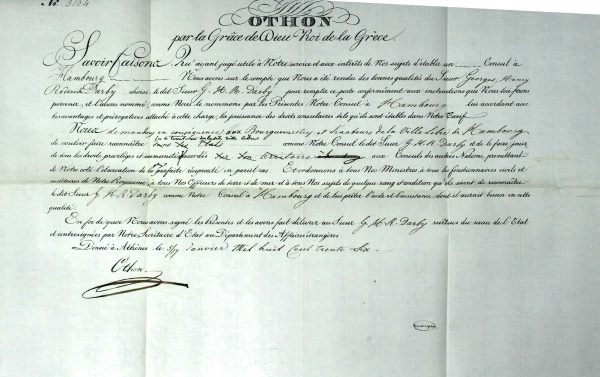 No. 3104
OTHON
par la Grâce de Dieu Roi de la Grèce.
Savoir faisons Qu'ayant jugé utile à Notre service et aux intérêts de Nos sujets d'établir un Consul à
Hambourg Nous avons sur le compte que Nous a été rendu des bonnes qualités du Sieur Georges Henry
Roderick Darby choisi ledit Sieur G. H. R. Darby pour remplir ce poste conformément aux instructions que Nous lui ferons
parvenir, et l'avons nommé, comme Nous le nommons par les Présentes Notre Consul à Hambourg lui accordant les
avantages et prérogatives attachés à cette charge, la jouissance des droits consulaires tels qu'ils sont établis dans Notre Tarif.
Nous demandons en conséquence aux Bourguemestres et Sénateurs de la Ville Libre de Hambourg
de vouloir faire reconnaître comme Notre Consul le dit Sieur G. H. R. Darby et de le faire jouir
de tous les droits privilèges et immunités accordés sur territoire aux Consuls des autres Nations, promettant
de Notre côté l'observation de la parfaite réciprocité en pareil cas. Et ordonnons à tous Nos Ministres à tous les fonctionnaires civils et
militaires de Notre Royaume à tous Nos Officiers de terre et de mer et à tous Nos Sujets de quelque rang et condition qu'ils soient, de reconnaître
le dit Sieur G. H. R. Darby comme Notre Consul à Hambourg et de lui prêter l'aide et l'assistance, dont il aurait besoin en cette
qualité.
En foi de quoi Nous avons signé les Présentes et les avons fait délivrer au Sieur G. H. R. Darby revêtues du sceau de l'Etat
et contresignées par Notre Secrétaire d'Etat au Département des Affaires étrangères.
Donné à Athènes le Janvier Mil huit Cent trente Six
Othon